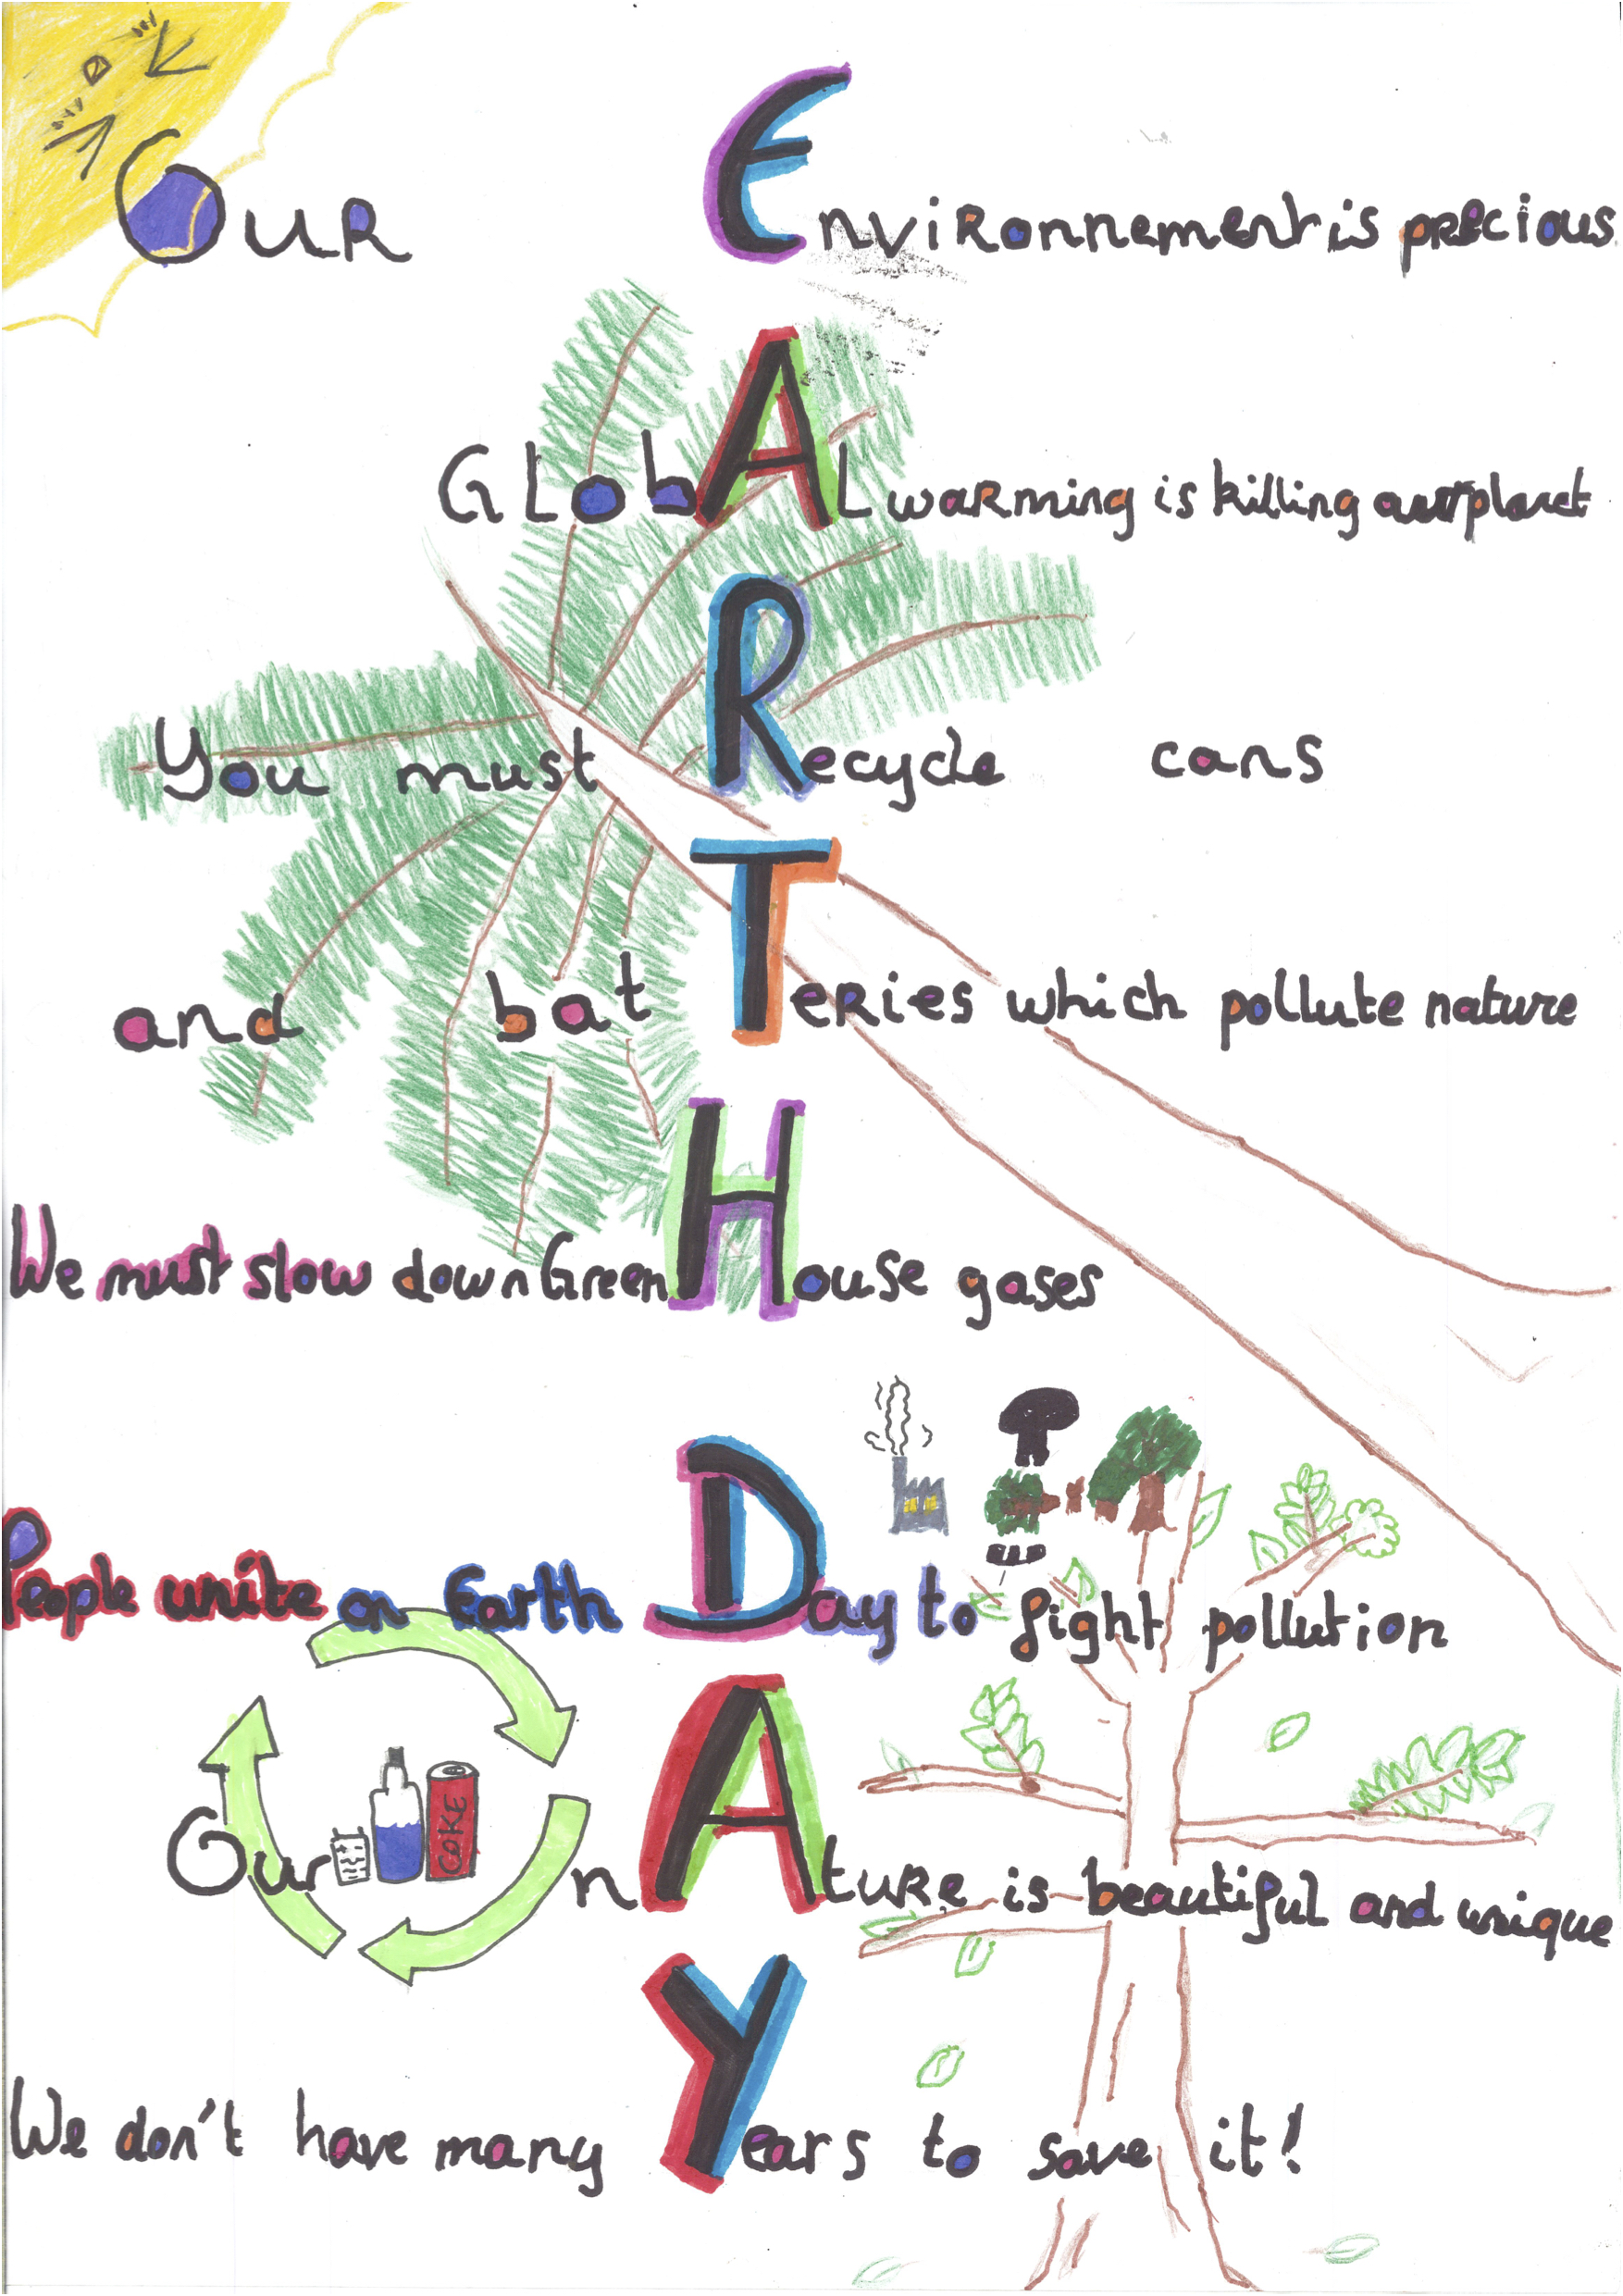 Our Environnement is precious
GLobAL warming is killing our planet
You must Recycle cans
and batTeries which pollute nature
We must slow down GreenHouse gases
People unite on Earth Day to fight pollution
COKE
Our nAture is beautiful and unique
We don't have many Years to save it!